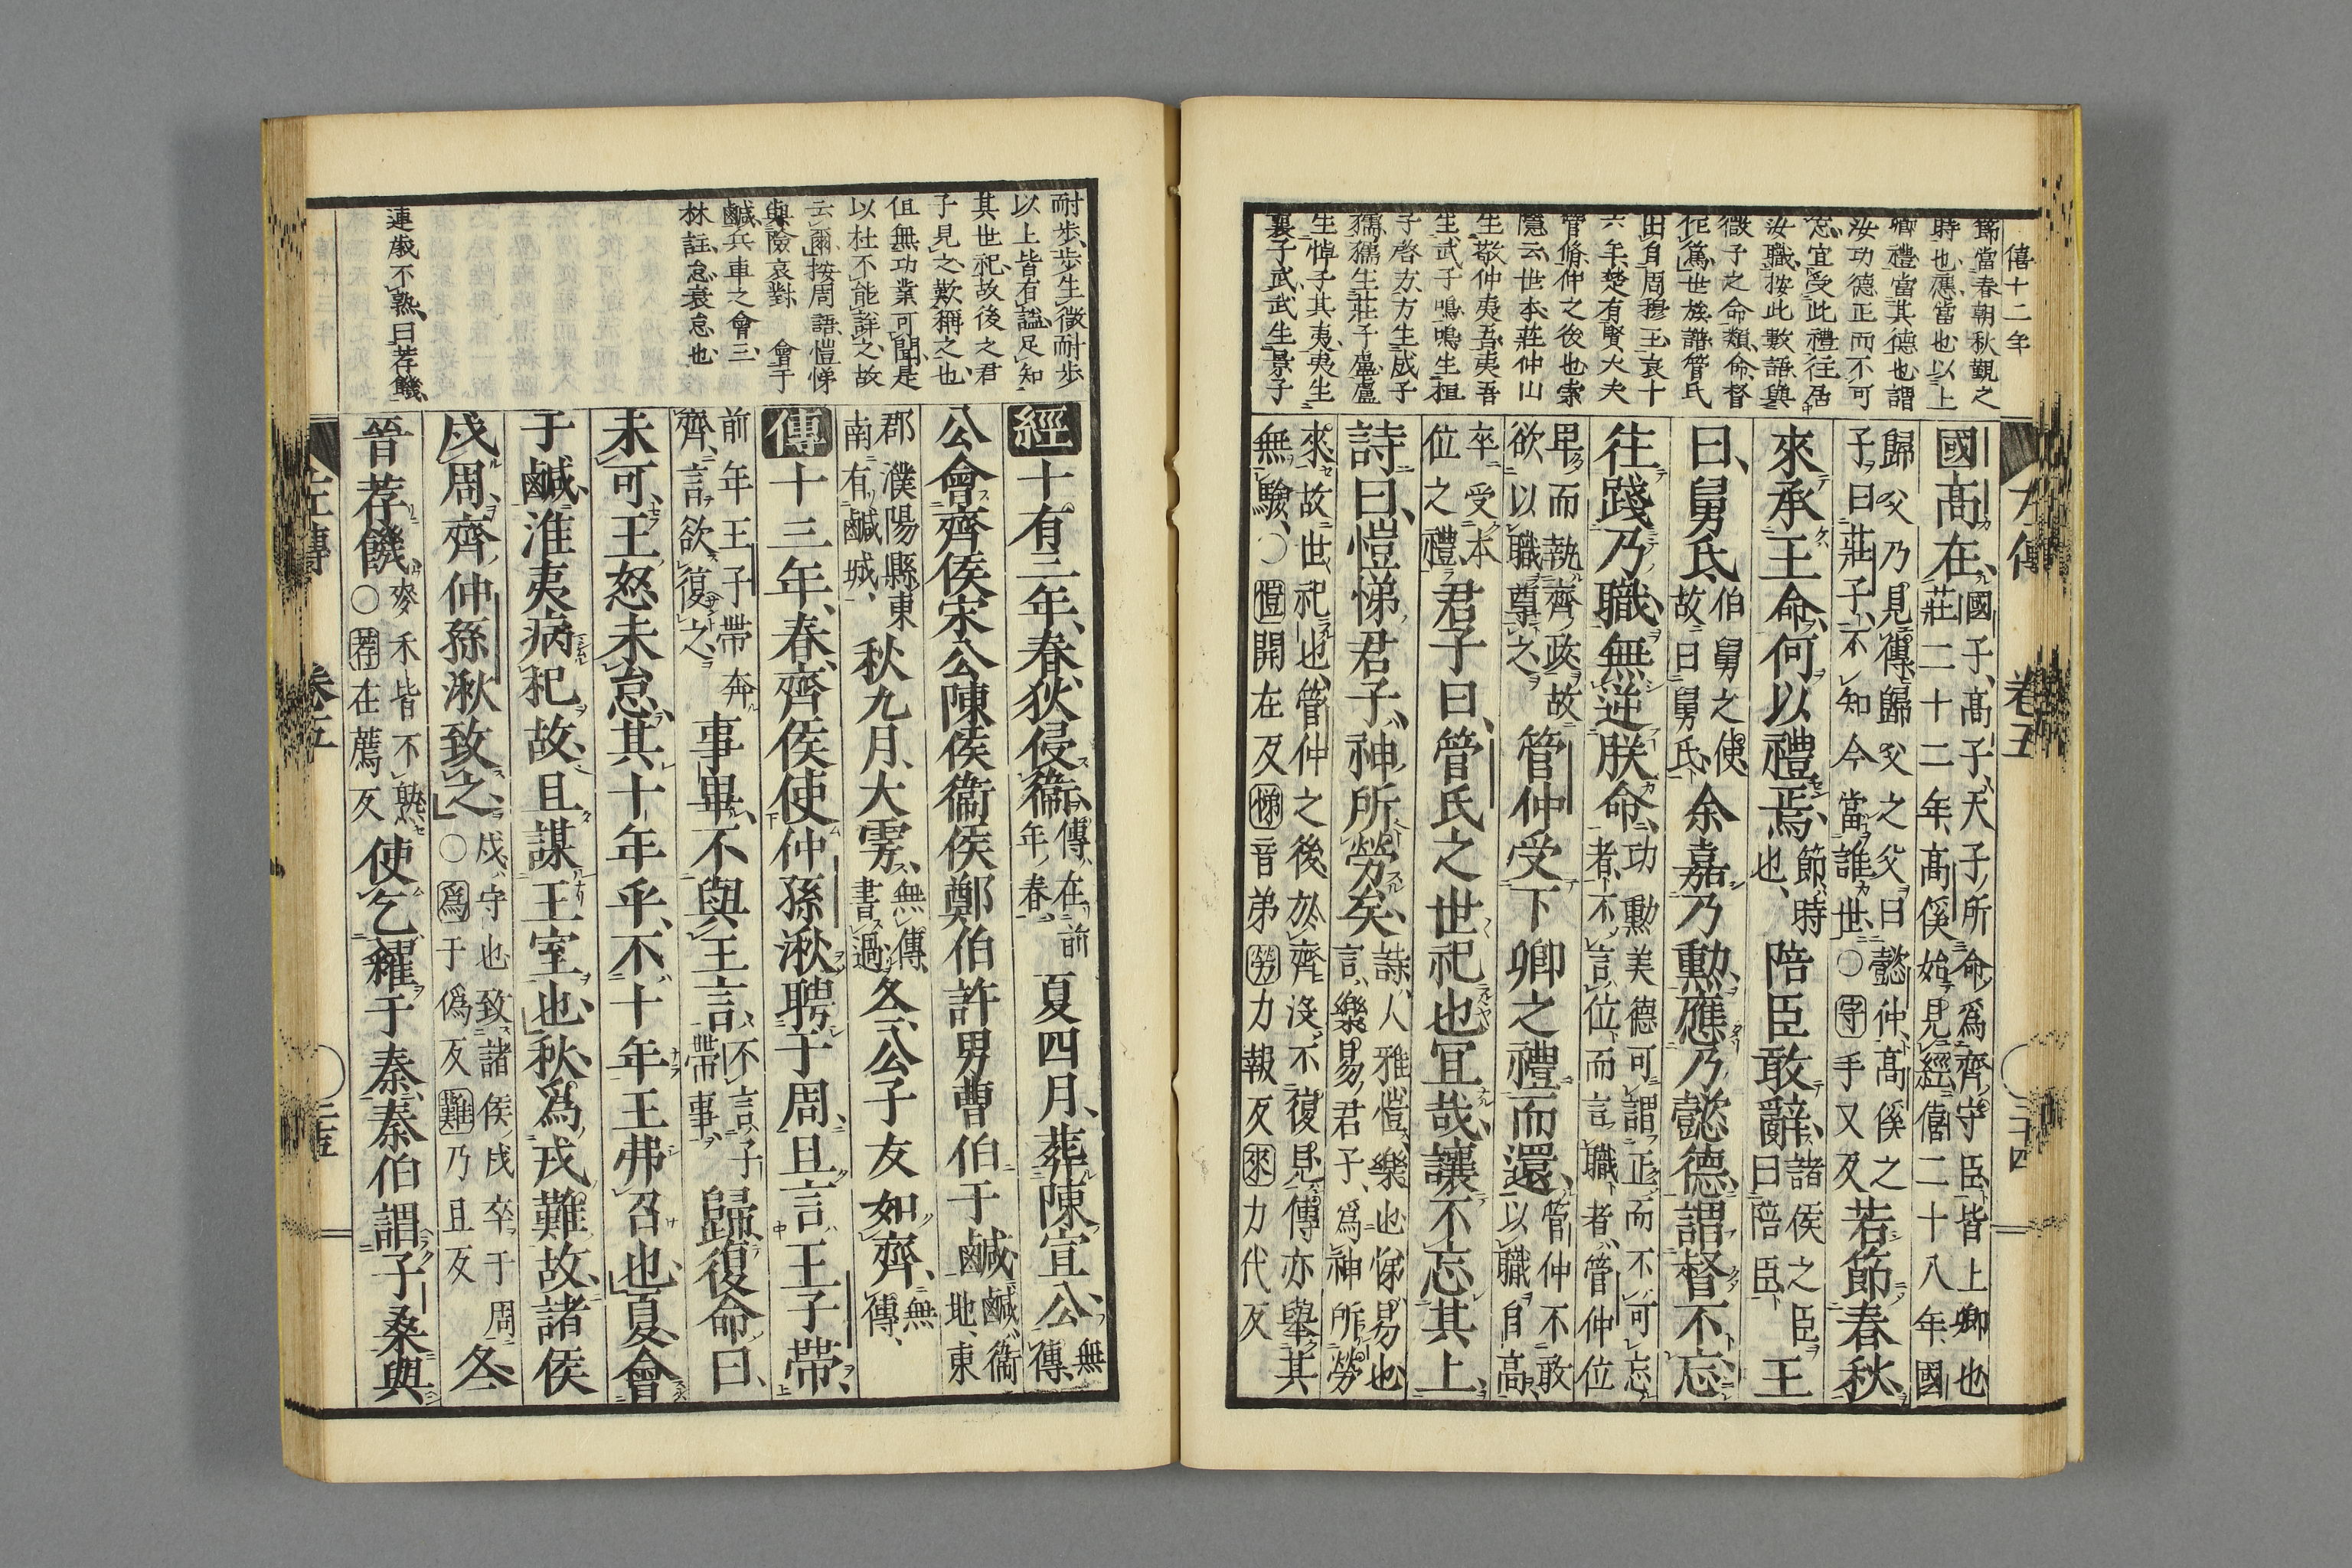 僖十二年
節當春朝秋覲之
時也應當也以上
卿禮當其德也謂
汝功德正而不可
忘宜受此禮往居
汝職按此數語與
微子之命類命督
作篤世族譜管氏
出自周穆王哀十
六年楚有賢大夫
管脩仲之後也索
隱云世本莊仲山
生敬仲夷吾夷吾
生武子鳴鳴生桓
子啓方方生成子
孺孺生莊子盧盧
生悼子其夷夷生
襄子武武生景子
國高在國子高子天子所命爲齊守臣皆上卿也
莊二十二年高傒始見經僖二十八年國
歸父乃見傳歸父之父曰懿仲高傒之
子曰莊子不知今當誰世○守手又反若節春秋
來承王命何以禮焉節時也陪臣敢辭諸侯之臣曰陪臣王
曰舅氏伯舅之使故曰舅氏余嘉乃勳應乃懿德謂督不忘
往踐乃職無逆朕命功勳美德可謂正而不可忘
者不言位而言職者管仲位
卑而執齊政故
欲以職尊之管仲受下卿之禮而還管仲不敢以職自高
卒受本
位之禮君子曰管氏之世祀也宜哉讓不忘其上
詩曰愷悌君子神所勞矣詩大雅愷樂也悌易也
言樂易君子爲神所勞
來故世祀也管仲之後於齊沒不復見傳亦舉其
無驗○愷開在反悌音弟勞力報反來力代反
左傳 卷五 二十四
耐歩歩生微而耐歩
以上皆有謚足知
其世祀故後之君
子見之歎稱之也
但無功業可聞是
以杜不能詳之故
云爾按周語愷悌
與險哀對 會于
鹹兵車之會三
林註怠衰怠也
連歲不熟曰荐饑
經十有三年春狄侵衞傳在前年春夏四月葬陳宣公無傳
公會齊侯宋公陳侯衞侯鄭伯許男曹伯于鹹鹹衞地東
郡濮陽縣東
南有鹹城秋九月大雩無傳書過冬公子友如齊無傳
傳十三年春齊侯使仲孫湫聘于周且言王子帶
前年王子帶奔
齊言欲復之事畢不與王言不言子帶事歸復命曰
未可王怒未怠其十年乎不十年王弗召也夏會
于鹹淮夷病杞故且謀王室也秋爲戎難故諸侯
戍周齊仲孫湫致之戍守也致諸侯戍卒于周
○爲于僞反難乃旦反冬
晉荐饑麥禾皆不熟○荐在薦反使乞糴于秦秦伯謂子桑與
左傳 卷五 二十五